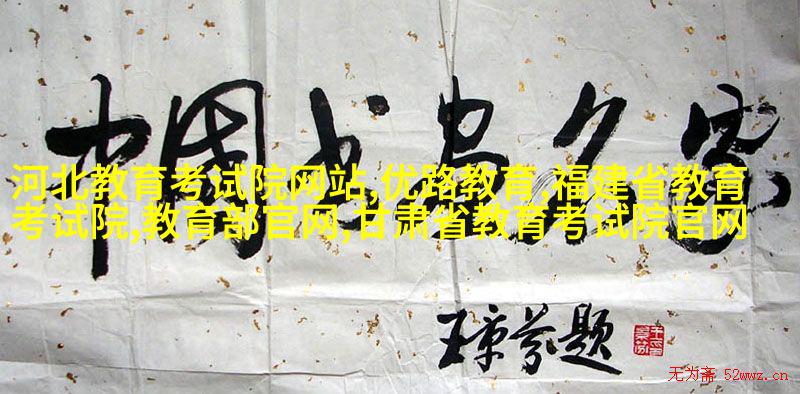 中国书画名家
河北教育考试院网站,优路教育,福建省教育
考试院,教育部官网,甘肃省教育考试院官网
王京芬题
无为斋 52wwz.cn